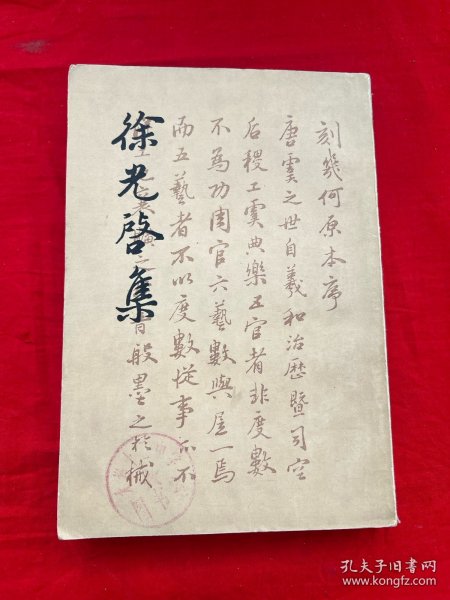 徐光啓集
刻幾何原本序
唐虞之世自羲和治歷暨司空
后稷工虞典樂五官者非度數
不為功周官六藝數與居一焉
而五藝者不以度數從事亦不
般墨之於械
孔夫子旧书网
www.kongfz.com